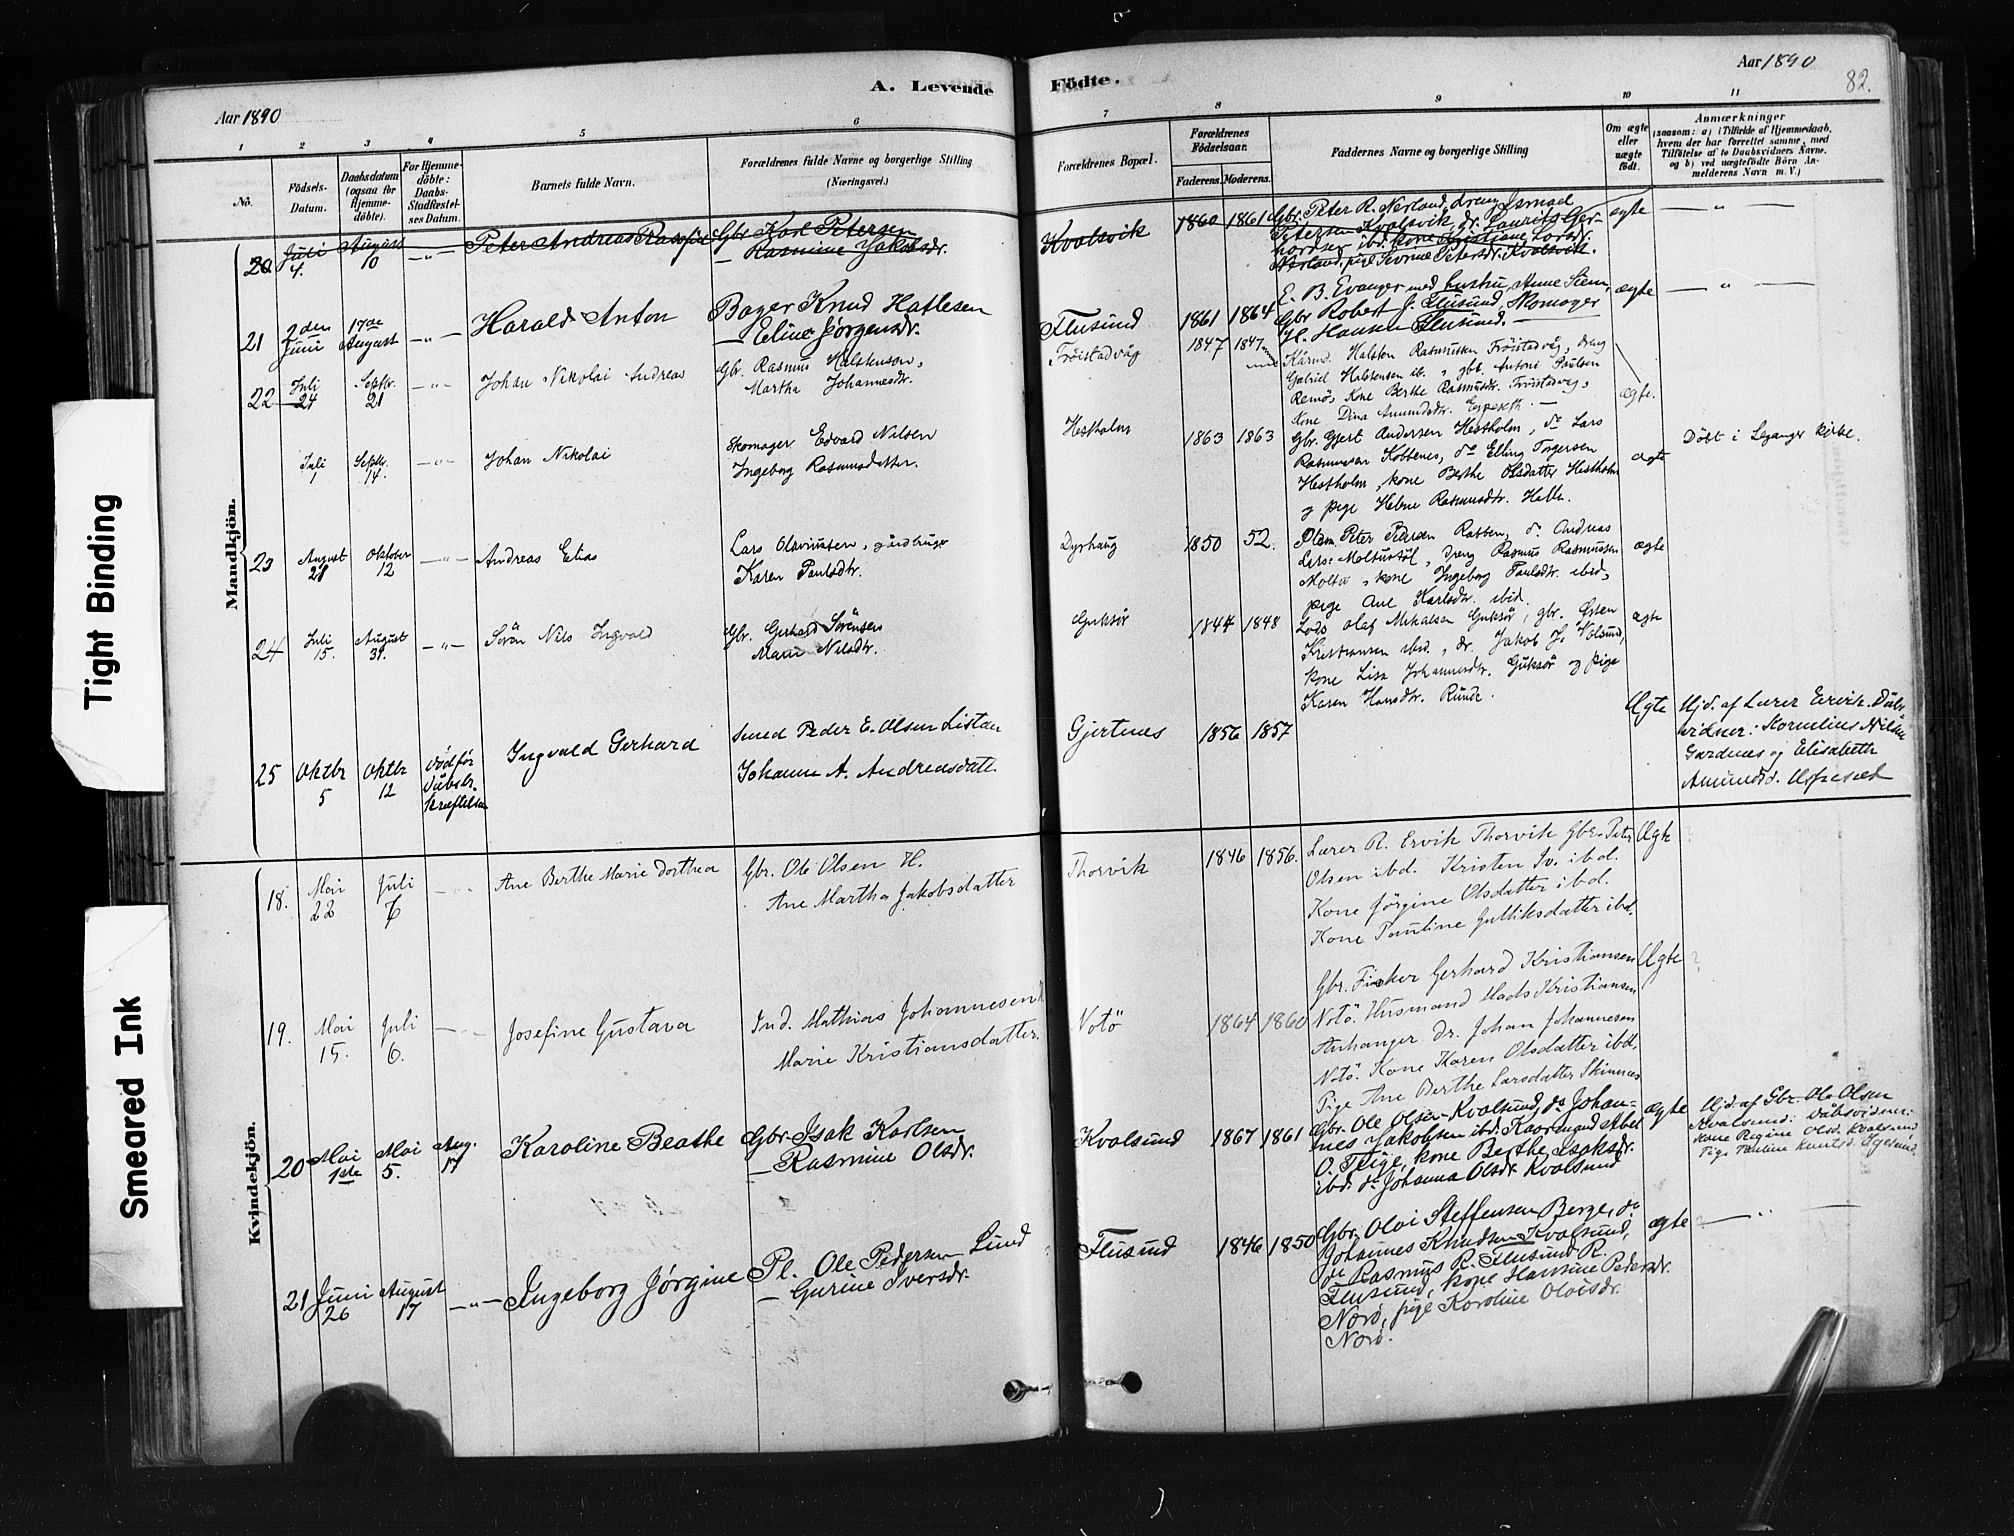 Aar 1890
A. Levende
Födte.
Aar 1890
82.
1 2 3 4 5 6 7 8 9 10 11
No.
Födsels-
Datum.
Daabsdatum
(ogsaa for
Hjemme-
döbte).
For Hjemme-
döbte:
Daabs-
Stadfæstel-
ses Datum.
Barnets fulde Navn.
Forældrenes fulde Navne og borgerlige Stilling
(Næringsvei.)
Forældrenes Bopæl.
Forældrenes
Födselsaar.
Faderens.
Moderens.
Faddernes Navne og borgerlige Stilling
Om ægte
eller
uægte
födt.
Anmærkninger
(saasom: a) i Tilfælde af Hjemmedaab,
hvem der har forrettet samme, med
Tilföielse af to Daabsvidners Navne.
og b) ved uægtefödte Börn An-
melderens Navn m. V.)
Mandkjön.
20 Juli 4. August 10 — " —
Peter Andreas
Gbr. Karl Petersen
— Rasmine Jakobsdr.
Kvalsvik 1860 1861
Gbr. Peter R. Nerland, dreng Ismael
Petersen Kvalsvik, dr. Laurits Ger-
hardsen ibd. kone Kristiane Larsdr.
Nerland, pige Sevrine Petersdr. Kvalsvik.
ægte — " —
21 2den Juni 17de August — " —
Harald Anton
Bager Knud Hatlesen
— Eline Jørgensdr.
Flusund 1861 1864
E. B. Evanger med hustru, Anne
Gbr Robert J. Flusund, Skomager
H. Hansen Flusund. —
ægte — " —
22 Juli 24 Septbr. 21 — " —
Johan Nikolai Andreas
Gbr. Rasmus Halstensen,
Martha Johannesdr.
Frøistadvåg 1847 1847
Kårmd. Halsten Rasmussen Frøistadvåg, dreng
Gabriel Halstensen ib., gbr. Antoni Paulsen
Remø, Kone Berthe Rasmusdr. Frøistadvåg,
Kone Dina Amundsdr. Espeseth. —
ægte.
Juli 1 Septbr. 14. — " —
Johan Nikolai
Skomager Edvard Nilsen
Ingeborg Rasmusdatter.
Hestholm 1863 1863
Gbr. Gjert Andersen Hestholm, do Lars
Rasmussen Kobbenes, do Elling Torgersen
Hestholm, kone Berthe Olsdatter Hestholm
og pige Helene Rasmusdtr. Hatle.
ægte
Döbt i Leganger kirke.
23 August 21 Oktober 12 — " —
Andreas Elias
Lars Olaviussen, gårdbruger
Karen Paulsdtr.
Dyrhaug 1850 52.
Peter Pedersen Rabben, do Andreas
Lars: Moltustöl, dreng Rasmus Rasmussen
Moltu, kone Ingeborg Paulsdtr. ibid,
pige Ane Karlsdtr. ibid.
ægte
24 Juli 15. August 31. — " —
Sörén Nils Ingvald
Gbr. Gerhard Sörensen
Marie Nilsdtr.
Gurskør 1844 1848
Lods Olaf Mikalsen Gurskør, gbr. Østen
Kristiansen ibid., dr. Jakob J. Voldsund,
kone Lisa Johannesdtr. Gurskør og pige
Karen Hansdtr. Runde.
ægte
25 Oktbr 5 Oktbr 12
død før
Dåbsbe-
kræftelsen
Ingvald Gerhard
Smed Peder E. Olsen Listau
Johanne A. Andreasdatt.
Gjertnes 1856 1857
Ægte
Hjd. af Lærer Ervik. Dåbs-
vidner: Kornelius Nilsen
Gardnes og Elisabeth
Amundsd. Espeset
Kvindekjön.
18. Mai 22 Juli 6 — " —
Ane Berthe Marie Dorthea
Gbr. Ole Olsen H.
Ane Martha Jakobsdatter
Thorvik 1846 1856.
Lærer R. Ervik Thorvik Gbr. Peter
Olsen ibd. Kristen Iv. ibd.
Kone Jörgine Olsdatter ibd.
Kone Pauline Gulliksdatter ibd.
Ægte ?
19. Mai 15. Juli 6. — " —
Josefine Gustava
Ind. Mathias Johannesen
Marie Kristiansdatter.
Notö 1864 1860
Gbr. Fisker Gerhard Kristiansen
Notö. Husmand Mads Kristiansen
Anhanger Dr. Johan Johannesen
Notö. Kone Karen Olsdatter ibd.
Pige Ane Berthe Larsdatter Skinnes
Ægte ?
20 Mai 1ste Mai 5. Aug. 17
Karoline Beathe
Gbr. Isak Karlsen
— Rasmine Olsdr.
Kvalsund 1867 1861
Gbr. Ole Olsen Kvalsund, do Johan-
nes Jakobsen ibd. Kaarmand Abel
O. Teige, kone Berthe Isaksdr.
ibd. do Johanna Olsdr. Kvalsund
ægte
Hjd. af Gbr. Ole Olsen
Kvalsund: Dåbsvidner:
kone Regine Olsd. Kvalsund
Pige Pauline Knutsd.
21 Juni 26 August 17 — " —
Ingeborg Jörgine
Pl. Ole Pedersen Lund
— Gurine Iversdr.
Flusund 1846 1850
Gbr. Olai Steffensen Berge, do
Johannes Knudsen Kvalsund,
do Rasmus R. Flusund R.
Flusund, kone Hansine Pedersdr.
Norö, pige Karoline Olaisdr.
Norö.
ægte — " —
Tight Binding
Smeared Ink